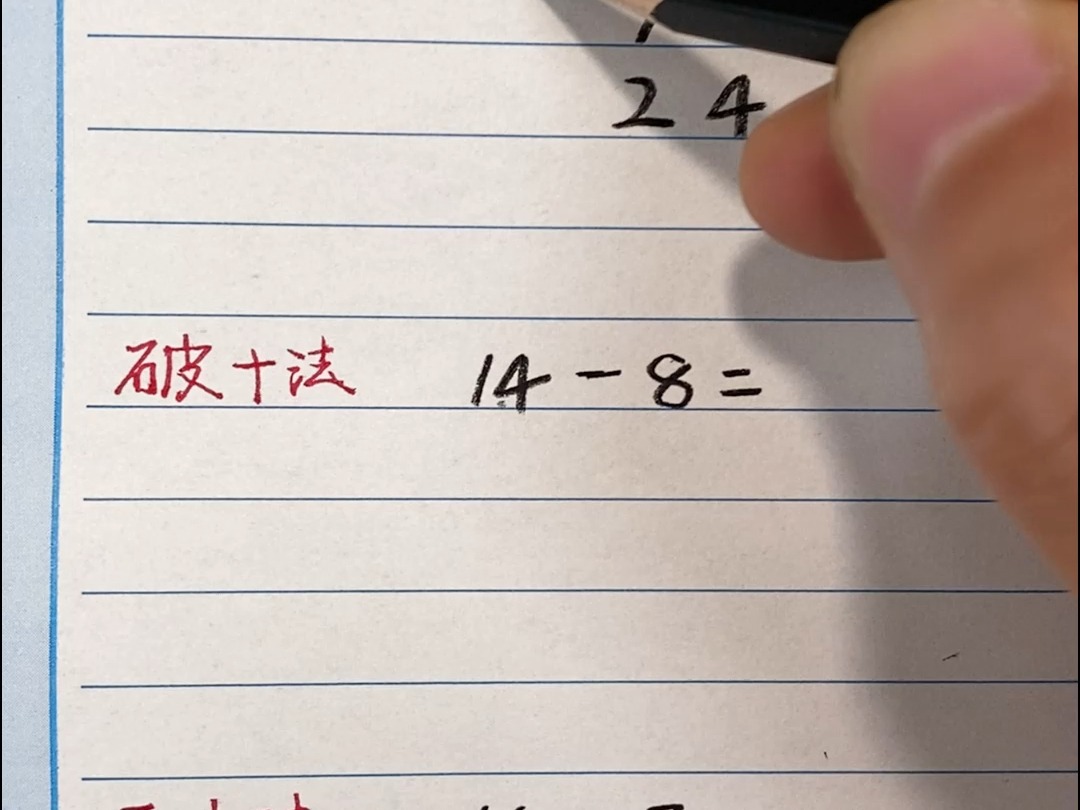 2 4
破十法 14-8=